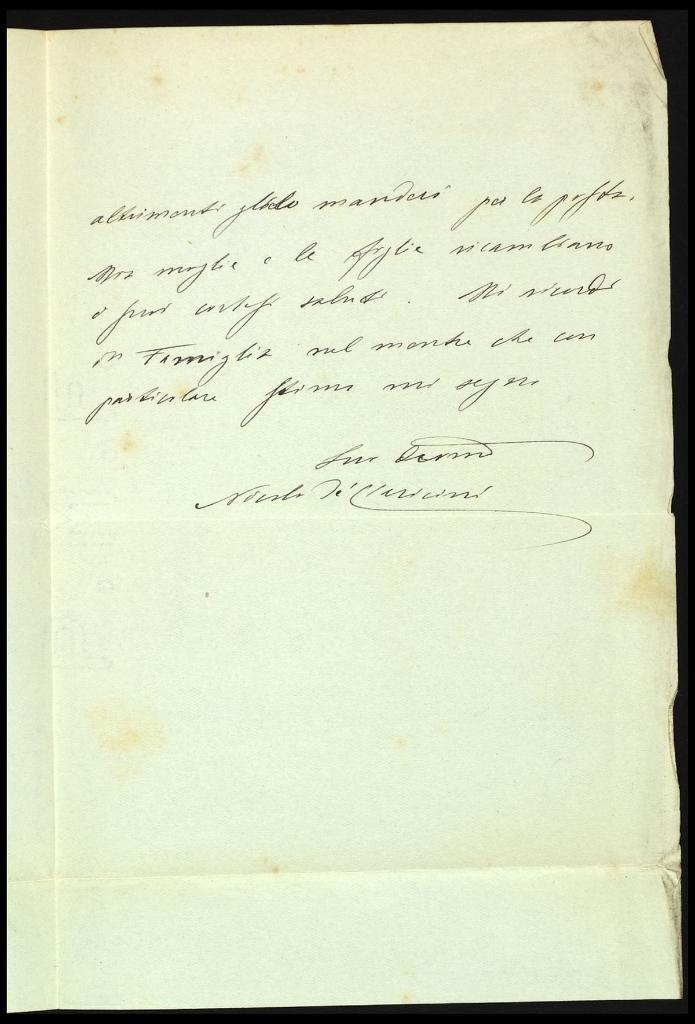 altrimenti glielo manderò per la posta.
Mia moglie e le figlie ricambiano
i suoi cortesi saluti. Mi ricordi
in Famiglia nel mentre che con
particolare stima mi segno
Suo Devmo
Nicolò De' Claricini